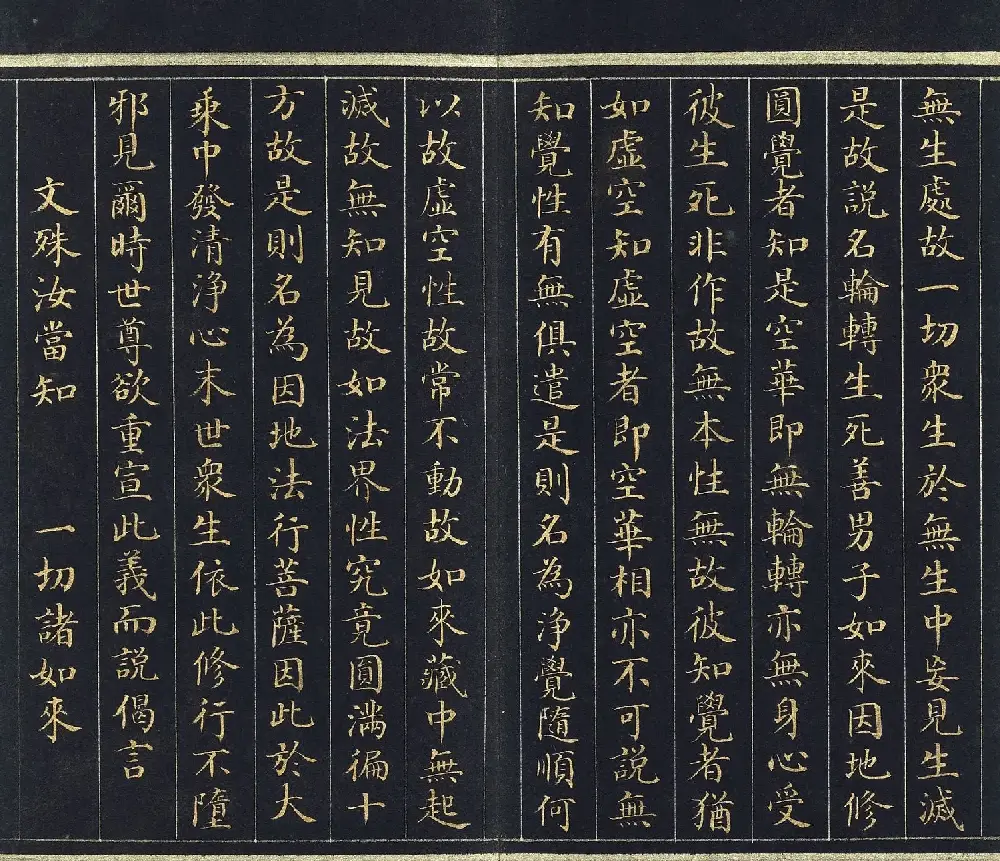 無生處故一切衆生於無生中妄見生滅
是故說名輪轉生死善男子如來因地修
圓覺者知是空華即無輪轉亦無身心受
彼生死非作故無本性無故彼知覺者猶
如虛空知虛空者即空華相亦不可說無
知覺性有無俱遣是則名為淨覺隨順何
以故虛空性故常不動故如來藏中無起
滅故無知見故如法界性究竟圓滿徧十
方故是則名為因地法行菩薩因此於大
乘巾發清淨心末世衆生依此修行不墮
邪見爾時世尊欲重宣此義而說偈言
文殊汝當知　一切諸如來